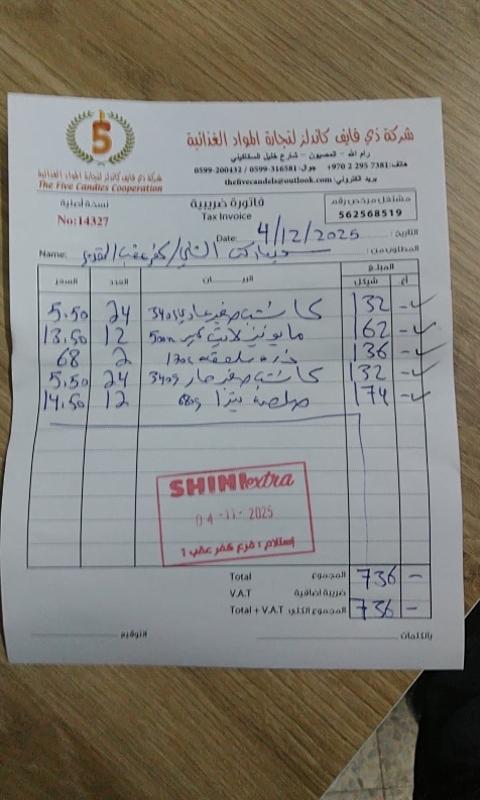 شركة ذي فايف كاندلز لتجارة المواد الغذائية
رام الله - المصيون - شارع خليل السكاكيني
هاتف: 7381 295 2 970+ جوال: 0599-316581 / 0599-200432
بريد الكتروني: thefivecandels@outlook.com
5
شركة ذي فايف كاندلز لتجارة المواد الغذائية
The Five Candles Cooperation
نسخة اصلية
No:14327
فاتورة ضريبية
Tax Invoice
مشتغل مرخص رقم
562568519
التاريخ: Date: 4/12/2025
المطلوب من: Name:
المبلغ
أغ شيكل البيــــان العدد السعر
132 - كاتشب صغير عادي 340g 24 5.50
162 - مايونيز لايت كبير 500m 12 13.50
136 - ذره 2 68
132 - كاتشب صغير حار 340g 24 5.50
174 - صلصة بيتزا 680g 12 14.50
SHINI extra
04-11-2025
إستلام : فرع كفر عقب 1
المجموع Total 736 -
ضريبة اضافية V.A.T
المجموع الكلي Total + V.A.T 736 -
بالكلمات التوقيع